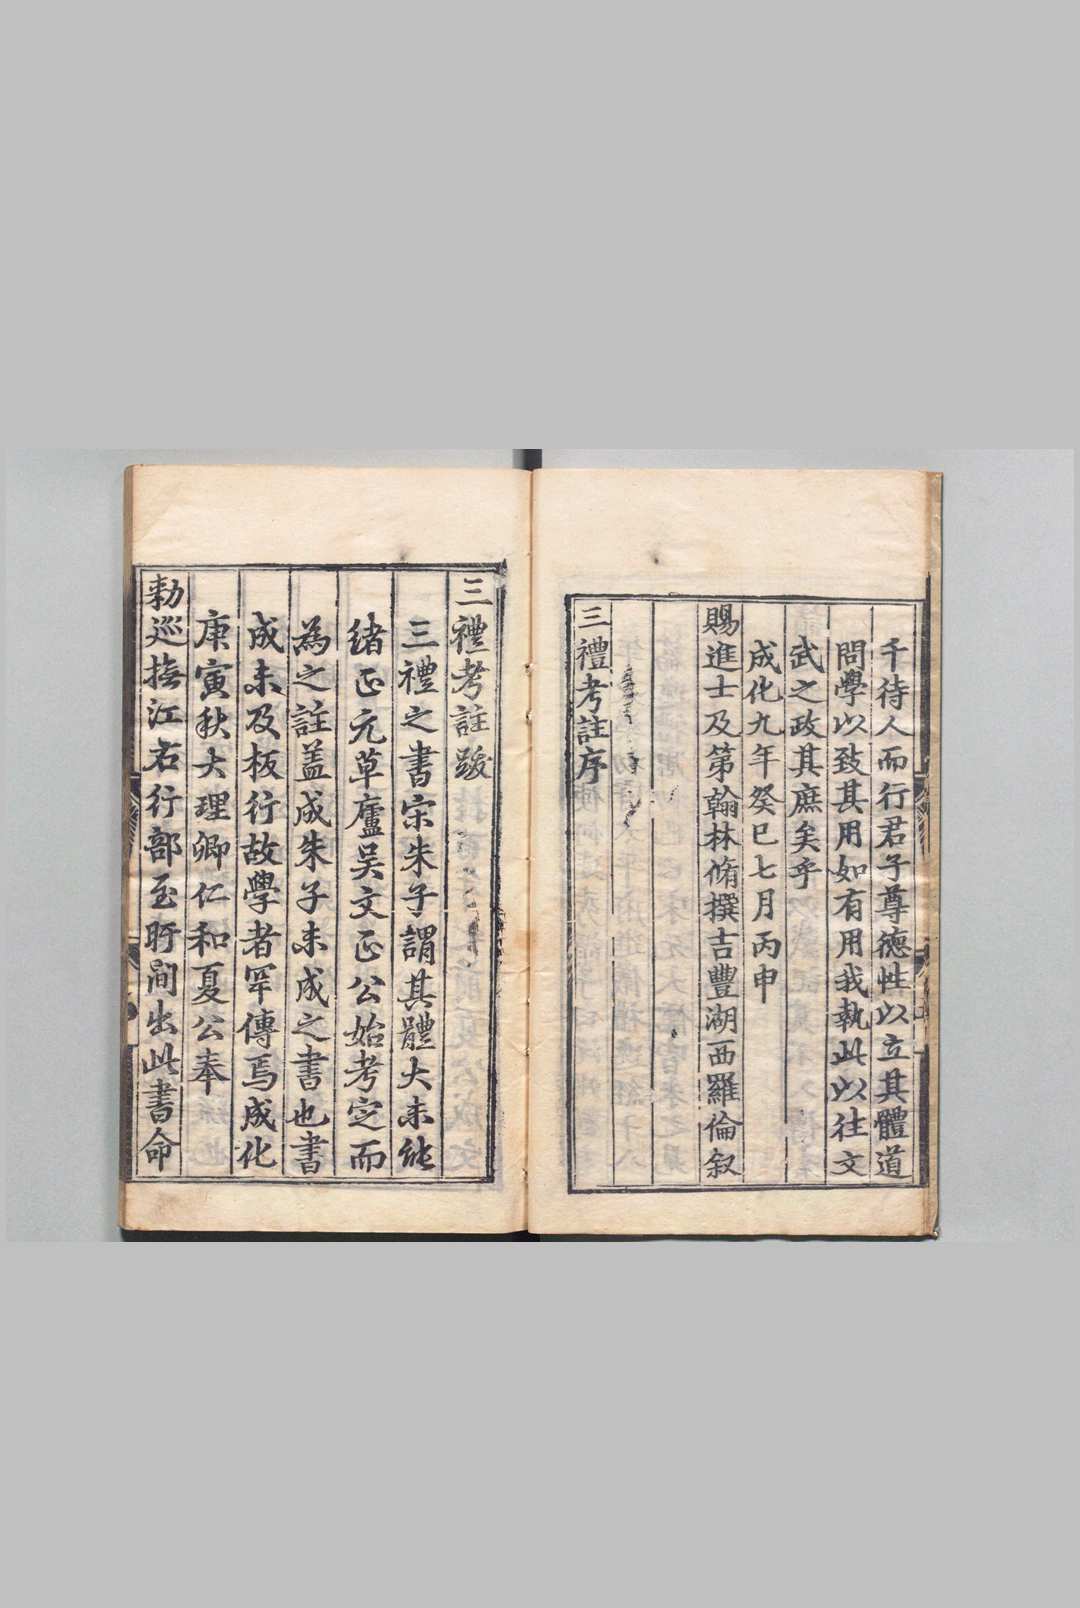 千待人而行君子尊德性以立其體道
問學以致其用如有用我執此以往文
武之政其庶矣乎
成化九年癸巳七月丙申
賜進士及第翰林脩撰吉豐湖西羅倫叙
三禮考註序
三禮考註跋
三禮之書宋朱子謂其體大未能
緒正元草廬吴文正公始考定而
為之註盖成朱子未成之書也書
成未及板行故學者罕傳焉成化
庚寅秋大理卿仁和夏公奉
勑巡撫江右行部至盱間出此書命